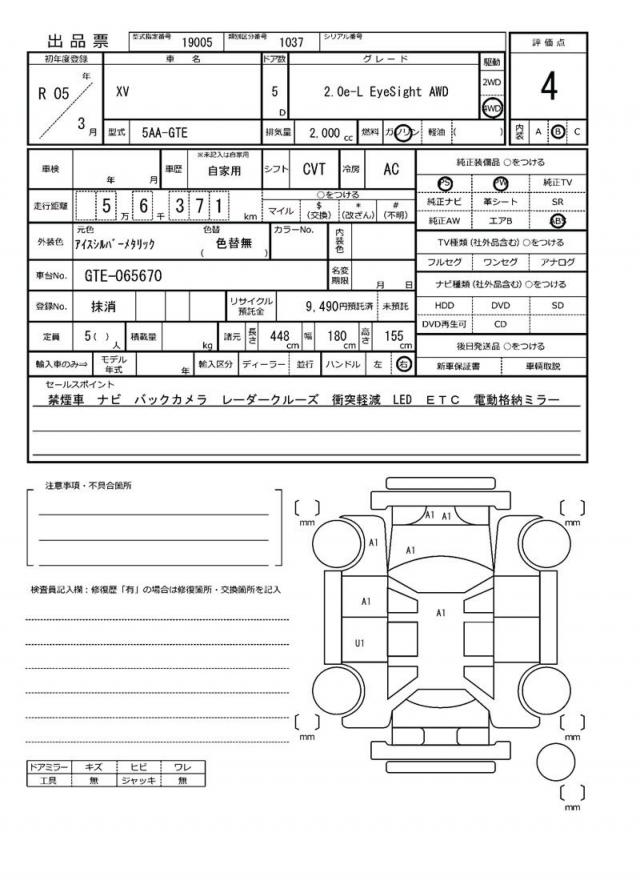 出品票 型式指定番号 19005 類別区分番号 1037 シリアル番号
初年度登録 車名 ドア数 グレード 駆動 評価点
R 05 年 3 月 XV 5 D 2.0e-L EyeSight AWD 2WD 4WD 4
型式 5AA-GTE 排気量 2,000 cc 燃料 ガソリン 軽油 ( ) 内装 A B C
車検 年 月 車歴 ※未記入は自家用 自家用 シフト CVT 冷房 AC 純正装備品 ○をつける
PS PW 純正TV
走行距離 5 万 6 千 3 7 1 km ○をつける
マイル $ (交換) * (改ざん) # (不明)
純正ナビ 革シート SR
純正AW エアB ABS
外装色 元色 アイスシルバーメタリック 色替 ( 色替無 ) カラーNo. 内装色
TV種類 (社外品含む) ○をつける
フルセグ ワンセグ アナログ
車台No. GTE-065670 名変期限 月 日
ナビ種類 (社外品含む) ○をつける
登録No. 抹消 リサイクル預託金 9,490円預託済 未預託
HDD DVD SD
DVD再生可 CD
定員 5( ) 人 積載量 kg 諸元 長さ 448 cm 幅 180 cm 高さ 155 cm
後日発送品 ○をつける
輸入車のみ⇒ モデル年式 年 輸入区分 ディーラー 並行 ハンドル 左 右
新車保証書 車輌取説
セールスポイント
禁煙車 ナビ バックカメラ レーダークルーズ 衝突軽減 LED ETC 電動格納ミラー
注意事項・不具合箇所
検査員記入欄：修復歴「有」の場合は修復箇所・交換箇所を記入
[ ] mm [ ] mm
A1 A1
A1 A1
A1 A1
U1
[ ] mm [ ] mm
[ ] mm
ドアミラー キズ ヒビ ワレ
工具 無 ジャッキ 無